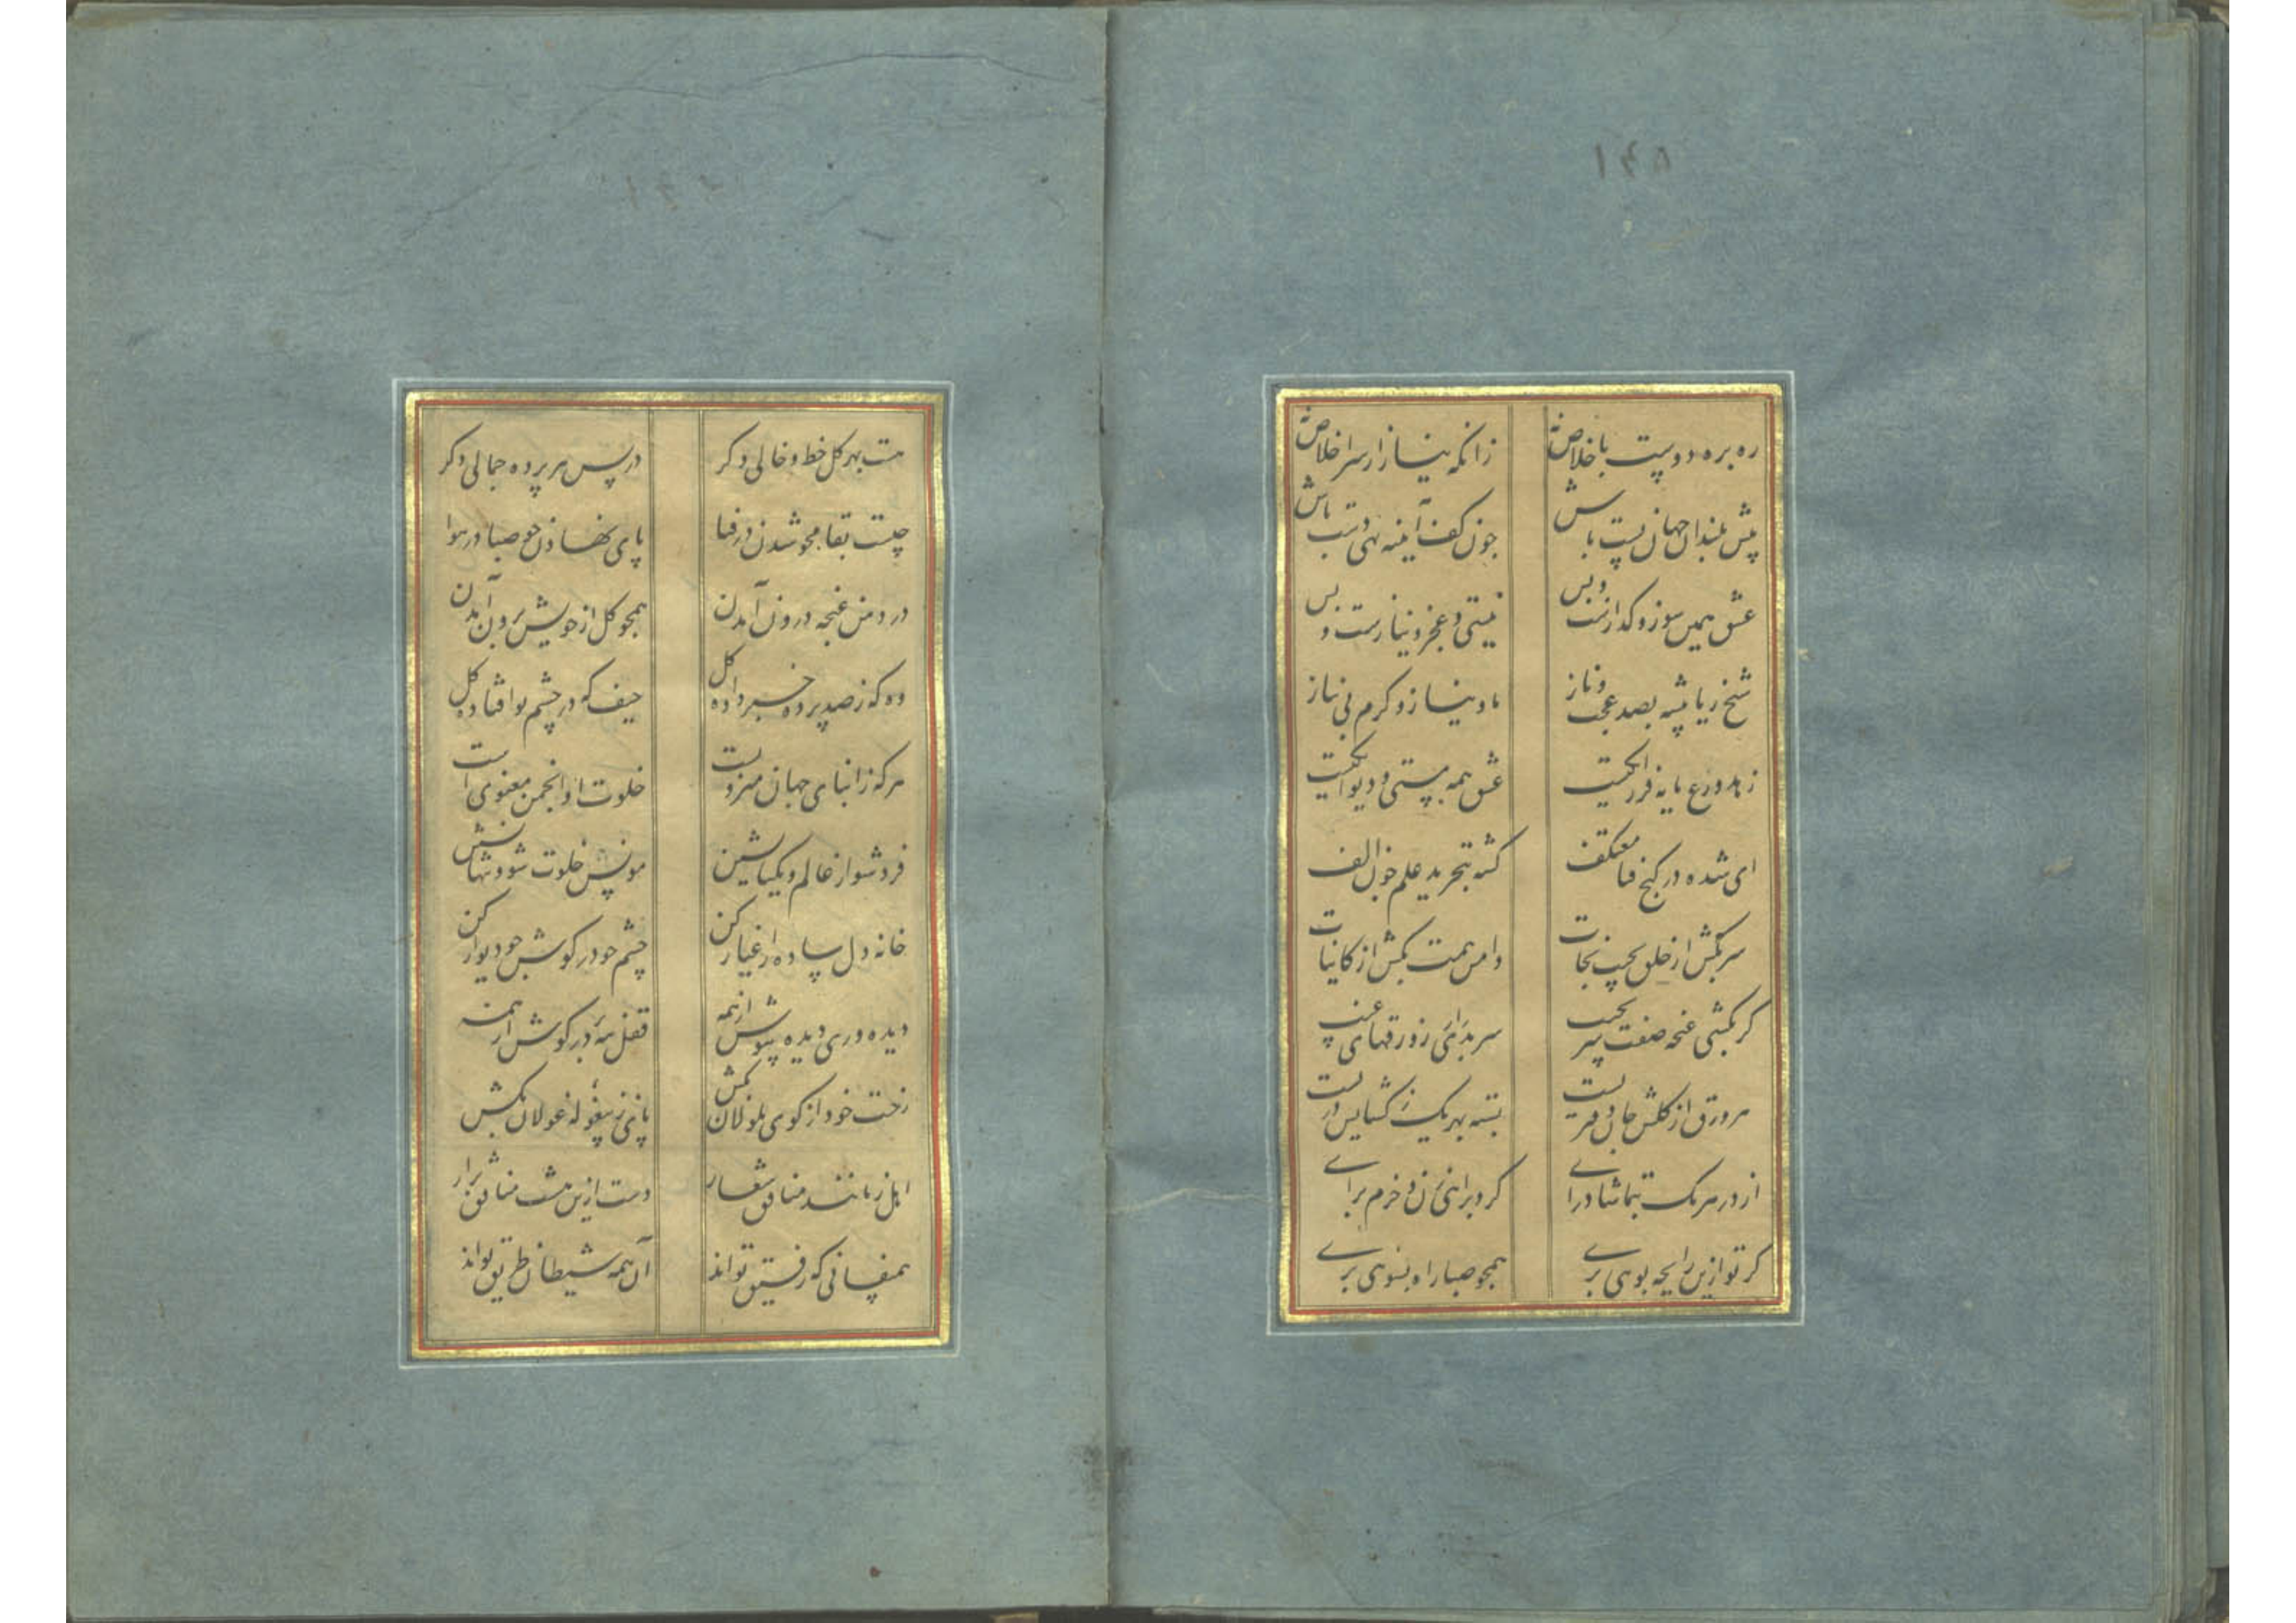 ره بره دوست باخلاص ده زانکه نیاز از سر اخلاص به
پیش بلندان جهان پست باش چون کف آیینه تهی دست باش
عشق همین سوز و گدازست و بس نیستی و عجز و نیازست و بس
شیخ ریا پیشه بصد عجب و ناز ما و نیاز و کرم بی نیاز
زهد و ورع مایه فرزانگیست عشق همه مستی و دیوانگیست
ای شده در کنج فنا معتکف گشته بتجرید علم چون الف
سر بکش از خلق بجیب نجات دامن همت بکش از کاینات
گر بکشی غنچه صفت سر بجیب سر بدر آری ز ورقهای غیب
هر ورق از گلشن جان دفتریست بسته بهر یک ز گشایش دریست
از در هر یک بتماشا درای گرد برانی زن و خرم برای
گر تو ازین رایحه بویی بری همچو صبا راه بسویی بری
هست بهر گل خط و خالی دگر در پس هر پرده جمالی دگر
چیست بقا محو شدن در فنا پای نهادن چو صبا در هوا
در دهن غنچه درون آمدن همچو گل از خویش برون آمدن
وه که ز صد پرده خبر داده گل حیف که در چشم تو افتاده گل
هر که ز ابنای جهان منزویست خلوت او انجمن معنویست
فرد شو از عالم و یکتا نشین مونس خلوت شو و تنها نشین
خانه دل ساده ز اغیار کن چشم چو در گوش چو دیوار کن
دیده وری دیده بپوش از همه قفل نه در گوش از همه
رخت خود از کوی ملولان بکش پای ز بیغوله غولان بکش
اهل زمانند منافق شعار دست ازین مشت منافق بدار
همنفسانی که رفیق تواند آن همه شیطان طریق تواند